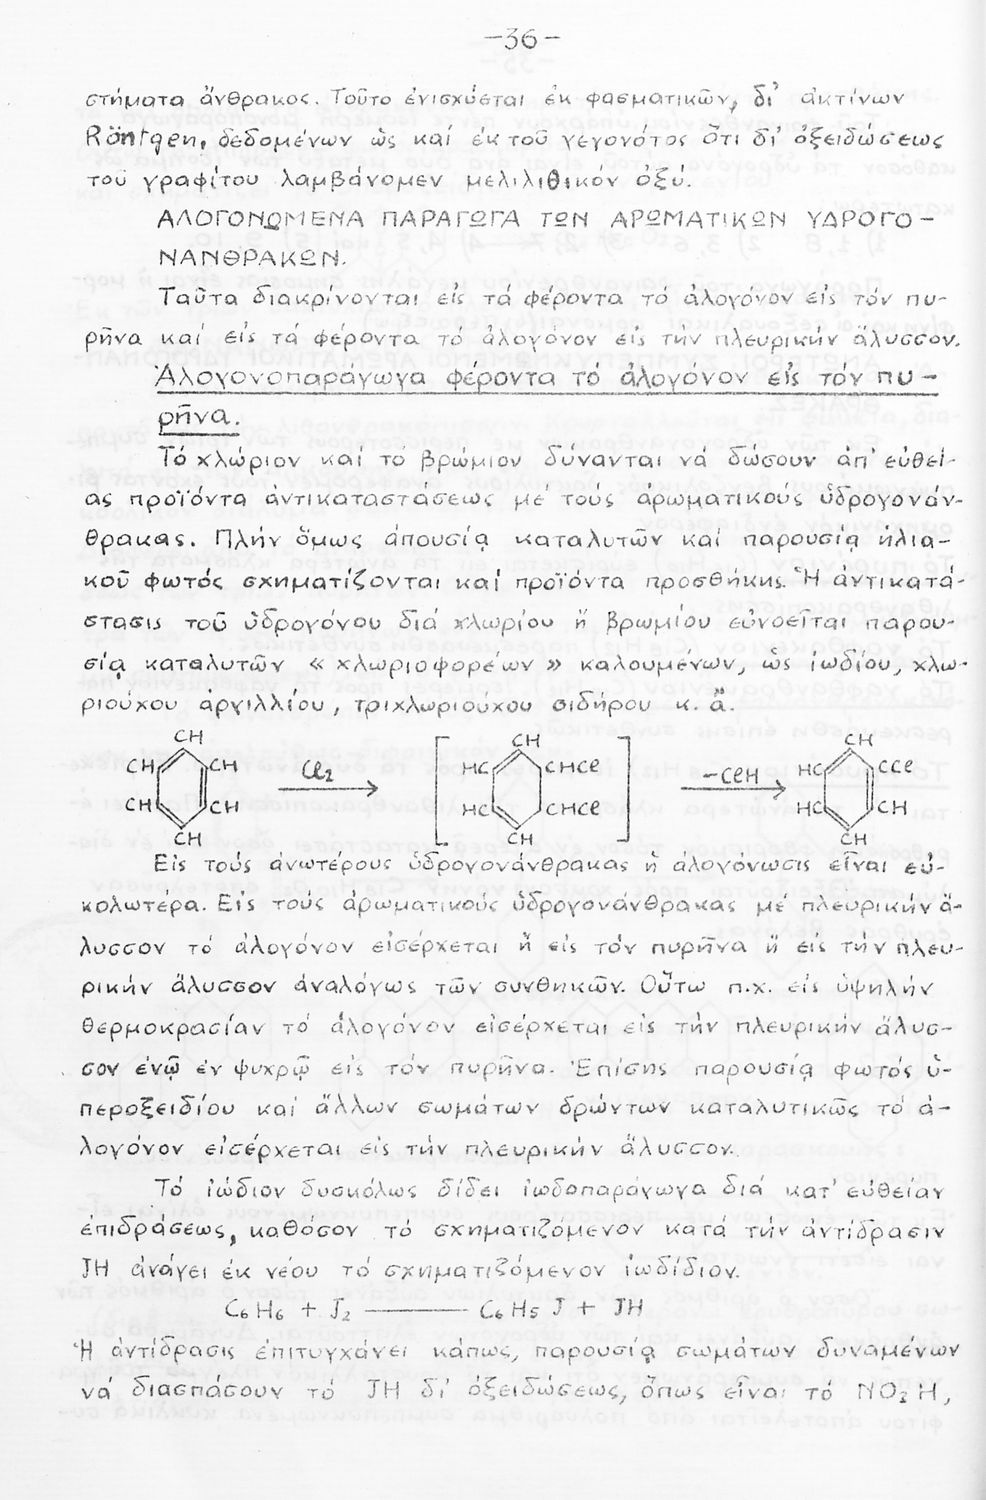 -36-
στήματα ἄνθρακος. Τοῦτο ἐνισχύεται ἐκ φασματικῶν, δι' ἀκτίνων
Röntgen, δεδομένων ὡς καί ἐκ τοῦ γεγονότος ὅτι δι' ὀξειδώσεως
τοῦ γραφίτου λαμβάνομεν μελιλιθικόν ὀξύ.
ΑΛΟΓΟΝΩΜΕΝΑ ΠΑΡΑΓΩΓΑ ΤΩΝ ΑΡΩΜΑΤΙΚΩΝ ΥΔΡΟΓΟ-
ΝΑΝΘΡΑΚΩΝ.
Ταῦτα διακρίνονται εἰς τά φέροντα τό ἀλογόνον εἰς τόν πυ-
ρῆνα καί εἰς τά φέροντα τό ἀλογόνον εἰς τήν πλευρικήν ἄλυσσον.
Ἀλογονοπαράγωγα φέροντα τό ἀλογόνον εἰς τόν πυ-
ρῆνα.
Τό χλώριον καί τό βρώμιον δύνανται νά δώσουν ἀπ' εὐθεί-
ας προϊόντα ἀντικαταστάσεως μέ τούς ἀρωματικούς ὑδρογονάν-
θρακας. Πλήν ὅμως ἀπουσίᾳ καταλυτῶν καί παρουσίᾳ ἡλια-
κοῦ φωτός σχηματίζονται καί προϊόντα προσθήκης. Ἡ ἀντικατά-
στασις τοῦ ὑδρογόνου διά χλωρίου ἤ βρωμίου εὐνοεῖται παρου-
σίᾳ καταλυτῶν « χλωριοφορείων » καλουμένων, ὡς ἰωδίου, χλω-
ριούχου ἀργιλλίου, τριχλωριούχου σιδήρου κ. ἄ.
CH CH CH
CH CH Cl₂ HC CHCl -ClH HC CCl
CH CH HC CHCl HC CH
CH CH CH
Εἰς τούς ἀνωτέρους ὑδρογονάνθρακας ἡ ἀλογόνωσις εἶναι εὐ-
κολωτέρα. Εἰς τούς ἀρωματικούς ὑδρογονάνθρακας μέ πλευρικήν ἄ-
λυσσον τό ἀλογόνον εἰσέρχεται ἤ εἰς τόν πυρῆνα ἤ εἰς τήν πλευ-
ρικήν ἄλυσσον ἀναλόγως τῶν συνθηκῶν. Οὕτω π.χ. εἰς ὑψηλήν
θερμοκρασίαν τό ἀλογόνον εἰσέρχεται εἰς τήν πλευρικήν ἄλυσ-
σον ἐνῷ ἐν ψυχρῷ εἰς τόν πυρῆνα. Ἐπίσης παρουσίᾳ φωτός ὑ-
περοξειδίου καί ἄλλων σωμάτων δρώντων καταλυτικῶς τό ἀ-
λογόνον εἰσέρχεται εἰς τήν πλευρικήν ἄλυσσον.
Τό ἰώδιον δυσκόλως δίδει ἰωδοπαράγωγα διά κατ' εὐθείαν
ἐπιδράσεως, καθόσον τό σχηματιζόμενον κατά τήν ἀντίδρασιν
JH ἀνάγει ἐκ νέου τό σχηματιζόμενον ἰωδίδιον.
C₆H₆ + J₂ ——— C₆H₅ J + JH
Ἡ ἀντίδρασις ἐπιτυγχάνει κάπως, παρουσίᾳ σωμάτων δυναμένων
νά διασπάσουν τό JH δι' ὀξειδώσεως, ὅπως εἶναι τό NO₂H,